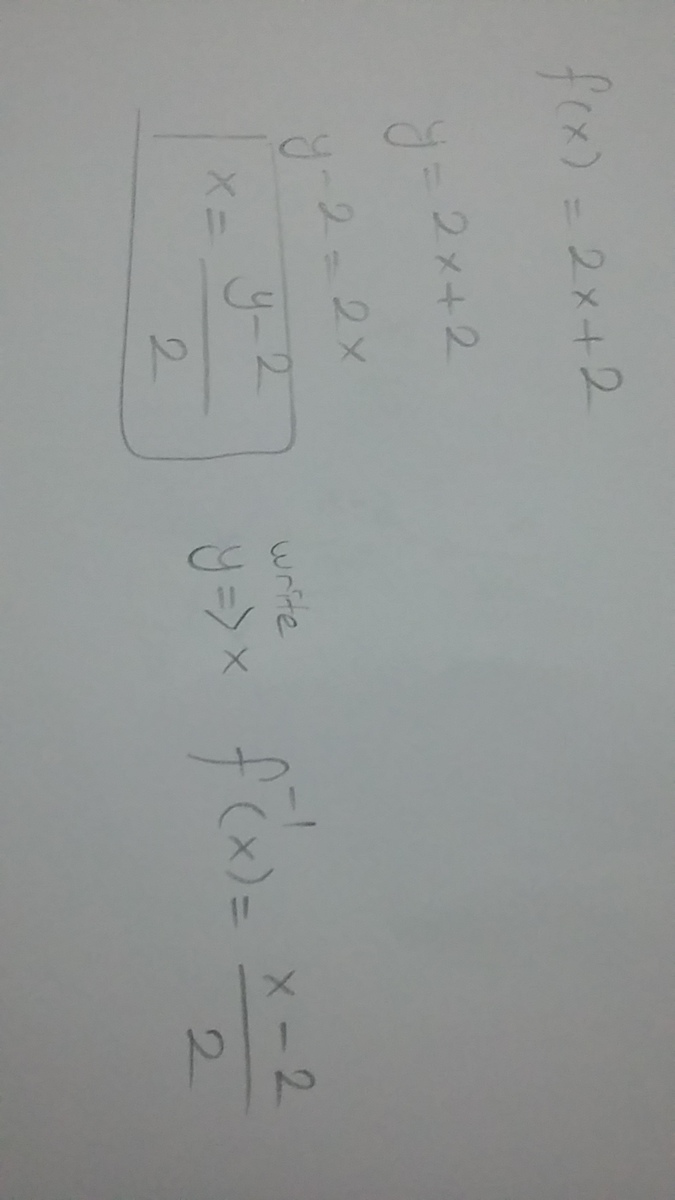 f(x) = 2x+2
y = 2x+2
y-2 = 2x
x = y-2
2
write
y => x
f⁻¹(x) = x-2
2